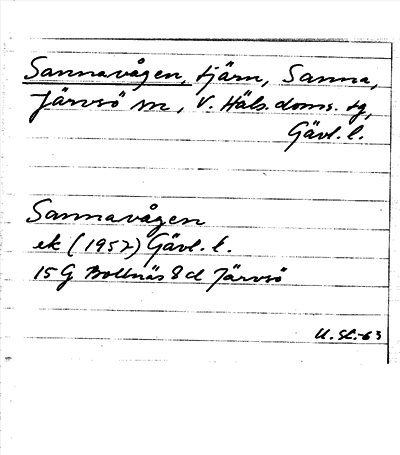 Sannavågen, tjärn, Sanna,
Järvsö sn, V. Häls. doms. tg,
Gävl. l.
Sannavågen
ek (1957) Gävl. l.
15 G Bollnäs 8 d Järvsö
U. Sl.-63